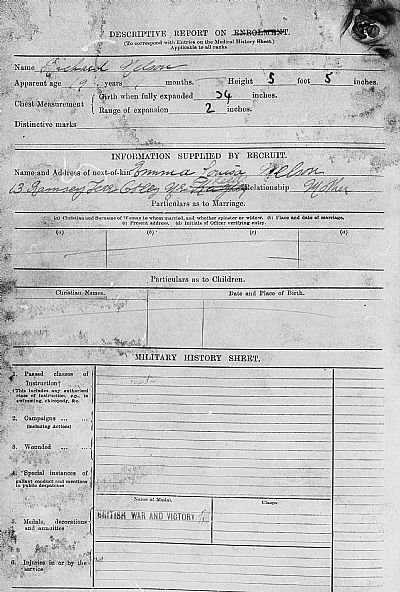 DESCRIPTIVE REPORT ON ENROLMENT.
(To correspond with Entries on the Medical History Sheet.)
Applicable to all ranks.
Name Richard Nelson
Apparent age 19 years months. Height 5 feet 5 inches.
Chest Measurement { Girth when fully expanded 34 inches.
Range of expansion 2 inches.
Distinctive marks
INFORMATION SUPPLIED BY RECRUIT.
Name and Address of next-of-kin Emma Louisa Nelson
13 Ramsey Relationship Mother
Particulars as to Marriage.
(a) Christian and Surname of Woman to whom married, and whether spinster or widow. (b) Place and date of marriage.
(c) Present address. (d) Initials of Officer verifying entry.
(a) (b) (c) (d)
Particulars as to Children.
Christian Names. Date and Place of Birth.
MILITARY HISTORY SHEET.
1. Passed classes of
Instruction†
(†This includes any authorised
class of instruction, e.g., in
swimming, chiropody, &c.
2. Campaigns ... ...
(including Actions)
3. Wounded ... ...
4. Special instances of
gallant conduct and mentions
in public despatches
Name of Medal. Clasps.
5. Medals, decorations
and annuities
BRITISH WAR AND VICTORY
6. Injuries in or by the
service